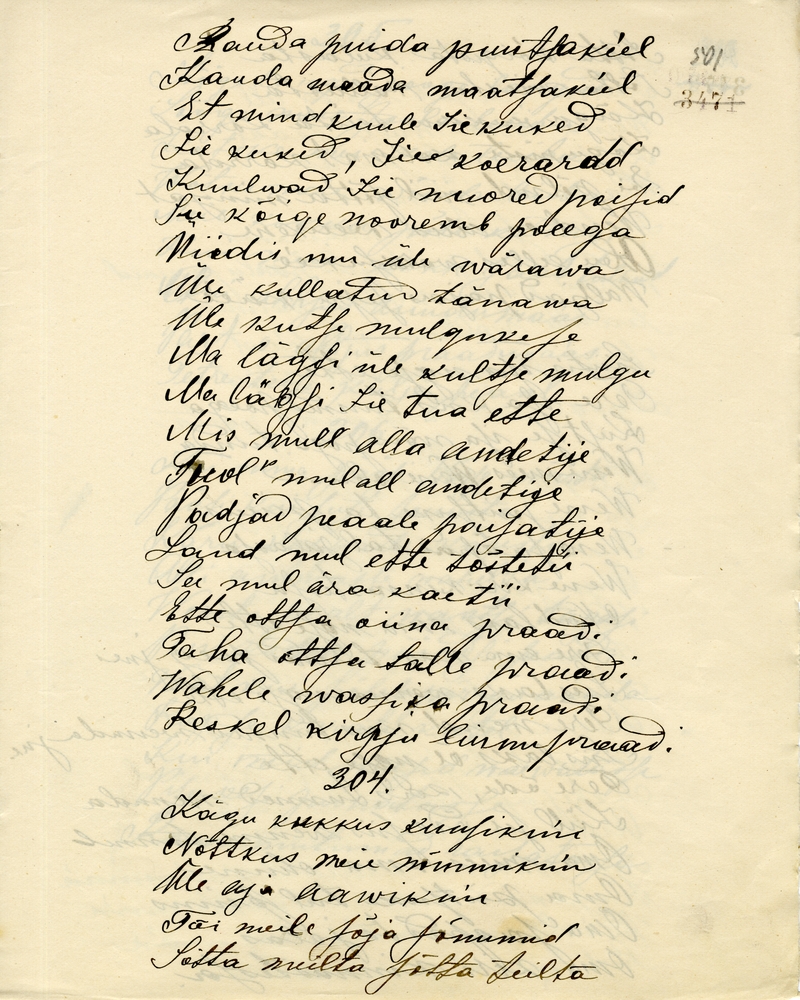 Kauda puida puutsakeel
Kauda maada maatsakeel
Et mind kuule sie kuked
Sie kuked, sie koerardd
Kuulwad sie nuored poisid
Sie kõige nooremb poeega
Niidis mu üle wärawa
Üle kullatud tänawa
Üle kutse mulgukese
Ma läksi üle kultse mulgu
Ma läksi sie tua ette
Mis mull alla andetije
Tuol mul all andetije
Padjad peaale paisatije
Laud mul ette tõstetii
See mul ära kaetii
Ette ottsa oiina praadi
Taha ottsa talle praadi
Wahele wassika praadi
Keskel kirjju linnu praadi.
304.
Kägu kukkus kuusikuin
Nottkus meie nõmmikuin
Üle aja aawikuin
Tõi meile sõja sõnumid
Sõtta meilta sõtta teilta
501
3471